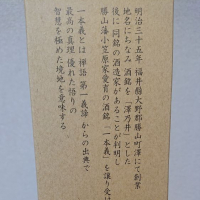 明治三十五年 福井県大野郡勝山町澤にて創業
地名にちなみ 酒銘を「澤乃井」とした
後に 同銘の酒造家があることが判明し
勝山藩小笠原家愛育の酒銘「一本義」を譲り受け
一本義とは 禅語「第一義諦」からの出典で
最高の真理 優れた悟りの
智慧を極めた境地を意味する